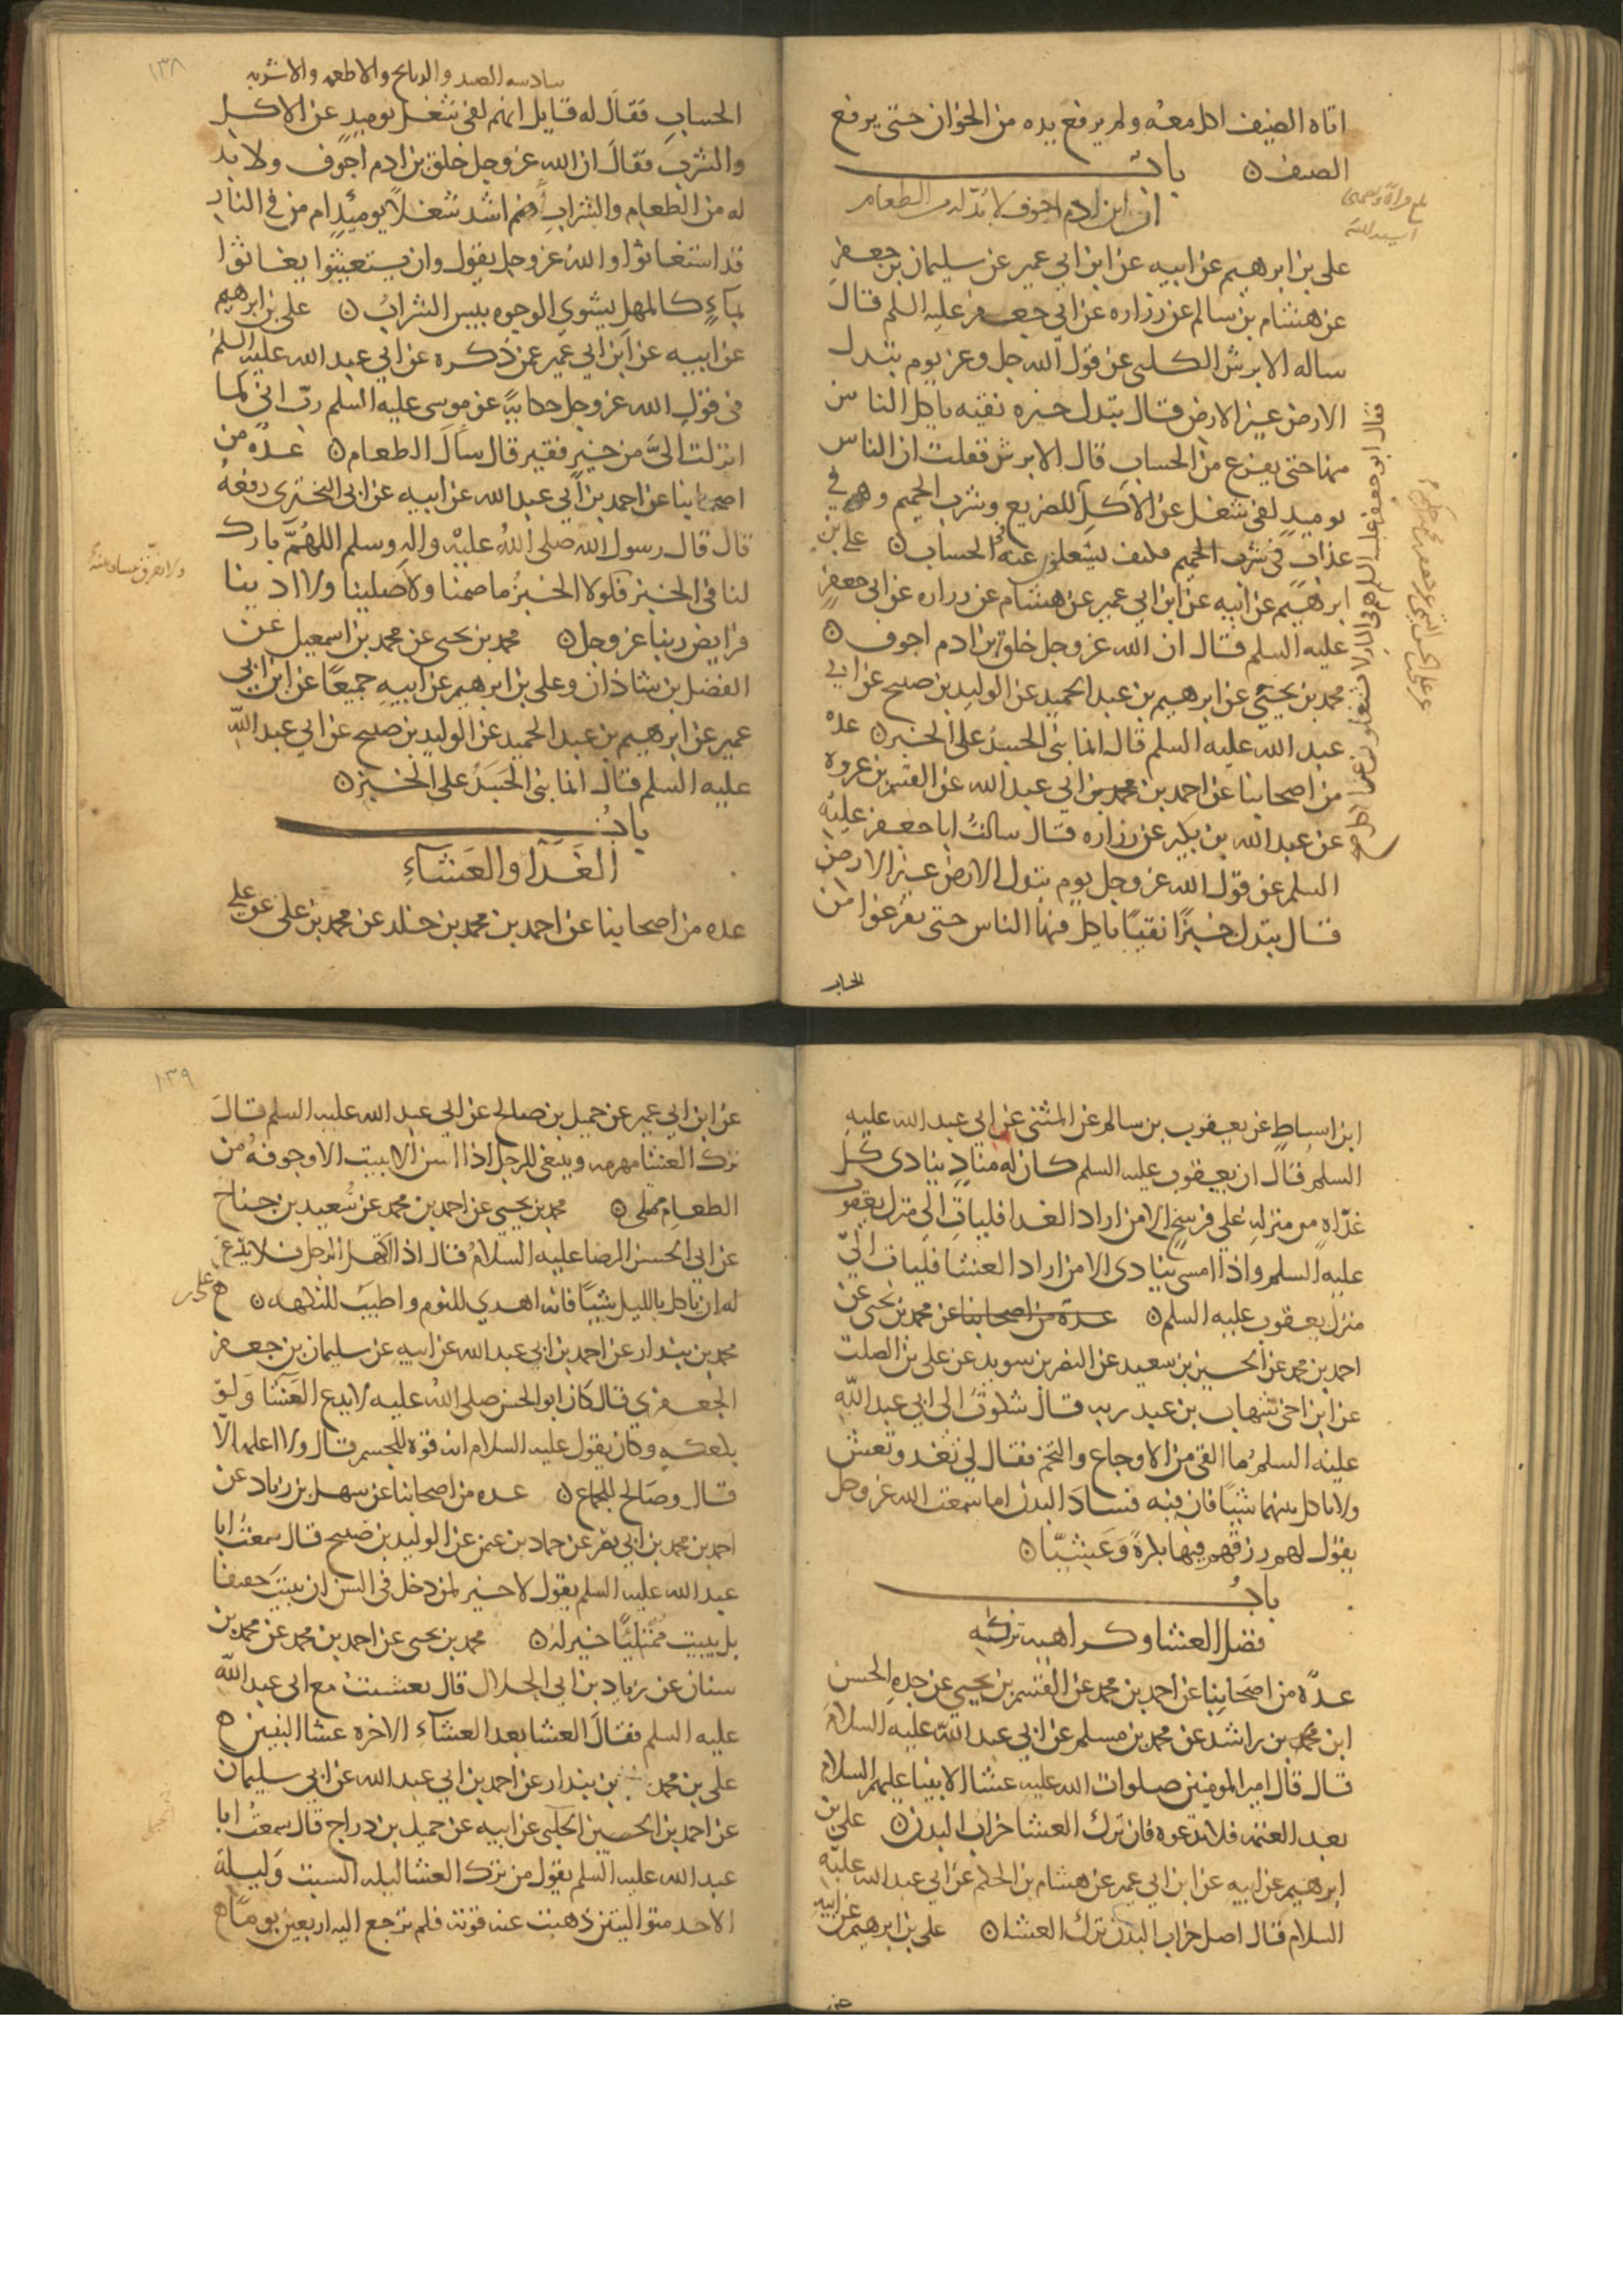 اتاه الضيف اكل معه ولم يرفع يده من الخوان حتى يرفع
الضيف ن باب
ان ابن ادم اجوف لا بد له من الطعام
على بن ابرهيم عن ابيه عن ابن ابي عمير عن سليمان بن جعفر
عن هشام بن سالم عن زراره عن ابي جعفر عليه السلم قال
ساله الابرش الكلبى عن قول الله جل وعز يوم تبدل
الارض غير الارض قال تبدل خبزه نقيه ياكل الناس
منها حتى يفرغ من الحساب قال الابرش فقلت ان الناس
يوميذ لفى شغل عن الاكل
فقال ابو جعفر عليه السلم هم فى النار لا يشتغلون عن اكل
الضريع وشرب الحميم وهم في
عذاب فكيف يشتغلون عنه في الحساب ن على بن
ابرهيم عن ابيه عن ابن ابي عمير عن هشام عن زراره عن ابى جعفر
عليه السلم قال ان الله عز وجل خلق ابن ادم اجوف ن
محمد بن يحيى عن ابرهيم بن عبد الحميد عن الوليد بن صبيح عن ابي
عبد الله عليه السلم قال انما بنى الجسد على الخبز ن عده
من اصحابنا عن احمد بن محمد بن ابي عبد الله عن القسم بن عروه
عن عبد الله بن بكير عن زراره قال سالت ابا جعفر عليه
السلم عن قول الله عز وجل يوم تبدل الارض غير الارض
قال تبدل خبزا نقيا ياكل منها الناس حتى يفرغوا من
الحساب
١٣٨
سادسه الصيد والذبايح والاطعمه والاشربه
الحساب فقال له قايل انهم لفى شغل يوميذ عن الاكل
والشرب فقال ان الله عز وجل خلق بن ادم اجوف ولا بد
له من الطعام والشراب أهم اشد شغلا يوميذ ام من في النار
قد استغاثوا والله عز وجل يقول وان يستغيثوا يغاثوا
بماء كالمهل يشوي الوجوه بيس الشراب ن على بن ابرهيم
عن ابيه عن ابن ابي عمير عمن ذكره عن ابي عبد الله عليه السلم
فى قول الله عز وجل حكاية عن موسى عليه السلم رب انى لما
انزلت الىّ من خير فقير قال سال الطعام ن عده من
اصحابنا عن احمد بن ابي عبد الله عن ابيه عن ابى البخترى رفعه
قال قال رسول الله صلى الله عليه واله وسلم اللهم بارك
لنا فى الخبز فلولا الخبز ما صمنا ولا صلينا ولا ادينا
فرايض ربنا عز وجل ن محمد بن يحيى عن محمد بن اسمعيل عن
الفضل بن شاذان وعلى بن ابرهيم عن ابيه جميعا عن ابن ابى
عمير عن ابرهيم بن عبد الحميد عن الوليد بن صبيح عن ابي عبد الله
عليه السلم قال انما بنى الجسد على الخبز ن
باب
الغدا والعشاء
عده من اصحابنا عن احمد بن محمد بن خلد عن محمد بن على عن على
ابن اسباط عن يعقوب بن سالم عن المثنى عن ابى عبد الله عليه
السلم قال ان يعقوب عليه السلم كان له مناد ينادى كل
غداه من منزله على فرسخ الا من اراد الغدا فليات الى منزل يعقوب
عليه السلم واذا امسى ينادى الا من اراد العشا فليات الى
منزل يعقوب عليه السلم ن عدة من اصحابنا عن محمد بن يحيى عن
احمد بن محمد عن الحسين بن سعيد عن النضر بن سويد عن على بن الصلت
عن ابن اخى شهاب بن عبد ربه قال شكوت الى ابى عبد الله
عليه السلم ما القى من الاوجاع والتخم فقال لى تغد وتعش
ولا تاكل بينهما شيئا فان فيه فساد البدن اما سمعت الله عز وجل
يقول لهم رزقهم فيها بكرة وعشيا ن
باب
فضل العشا وكراهيه تركه
عدة من اصحابنا عن احمد بن محمد عن القسم بن يحيى عن جده الحسن
ابن محمد بن راشد عن محمد بن مسلم عن ابي عبد الله عليه السلام
قال قال امير المومنين صلوات الله عليه عشا الانبيا عليهم السلام
بعد العتمه فلا تدعوه فان ترك العشا خراب البدن ن على بن
ابرهيم عن ابيه عن ابن ابي عمير عن هشام بن الحكم عن ابي عبد الله عليه
السلام قال اصل خراب البدن ترك العشا ن على بن ابرهيم عن ابيه
عن
١٣٩
عن ابن ابي عمير عن جميل بن صالح عن ابي عبد الله عليه السلم قال
ترك العشا مهرمه وينبغى للرجل اذا اسن الا يبيت الا وجوفه من
الطعام ممتلى ن محمد بن يحيى عن احمد بن محمد عن سعيد بن جناح
عن ابى الحسن الرضا عليه السلام قال اذا اكتهل الرجل فلا يدع
له ان ياكل بالليل شيئا فانه اهدي للنوم واطيب للنكهه ن على بن
محمد بن بندار عن احمد بن ابي عبد الله عن ابيه عن سليمان بن جعفر
الجعفرى قال كان ابو الحسن صلى الله عليه لا يدع العشا ولو
بكعكه وكان يقول عليه السلام انه قوة للجسم قال ولا اعلمه الا
قال وصالح للجماع ن عده من اصحابنا عن سهل بن زياد عن
احمد بن محمد بن ابي نصر عن حماد بن عثمن عن الوليد بن صبيح قال سمعت ابا
عبد الله عليه السلم يقول لا خير لمن دخل فى السن ان يبيت خفيفا
بل يبيت ممتليا خير له ن محمد بن يحيى عن احمد بن محمد عن محمد بن
سنان عن زياد بن ابي الحلال قال تعشيت مع ابى عبد الله
عليه السلم فقال العشا بعد العشاء الاخره عشا النبيين ه
على بن محمد بن بندار عن احمد بن ابي عبد الله عن ابي سليمان
عن احمد بن الحسين الجبلى عن ابيه عن جميل بن دراج قال سمعت ابا
عبد الله عليه السلم يقول من ترك العشا ليله السبت وليلة
الاحد متواليتين ذهبت عنه قوته فلم ترجع اليه اربعين يوما ه